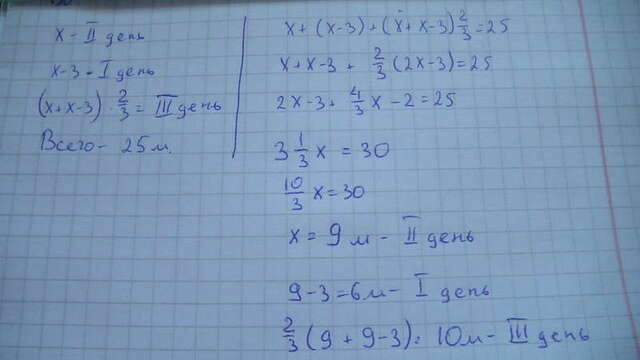 x - II день
x-3 - I день
(x+x-3) · 2/3 = III день
Всего - 25 м.
x + (x-3) + (x+x-3) 2/3 = 25
x+x-3 + 2/3 (2x-3) = 25
2x-3 + 4/3 x - 2 = 25
3 1/3 x = 30
10/3 x = 30
x = 9 м - II день
9-3=6м - I день
2/3 (9 + 9-3) = 10м - III день